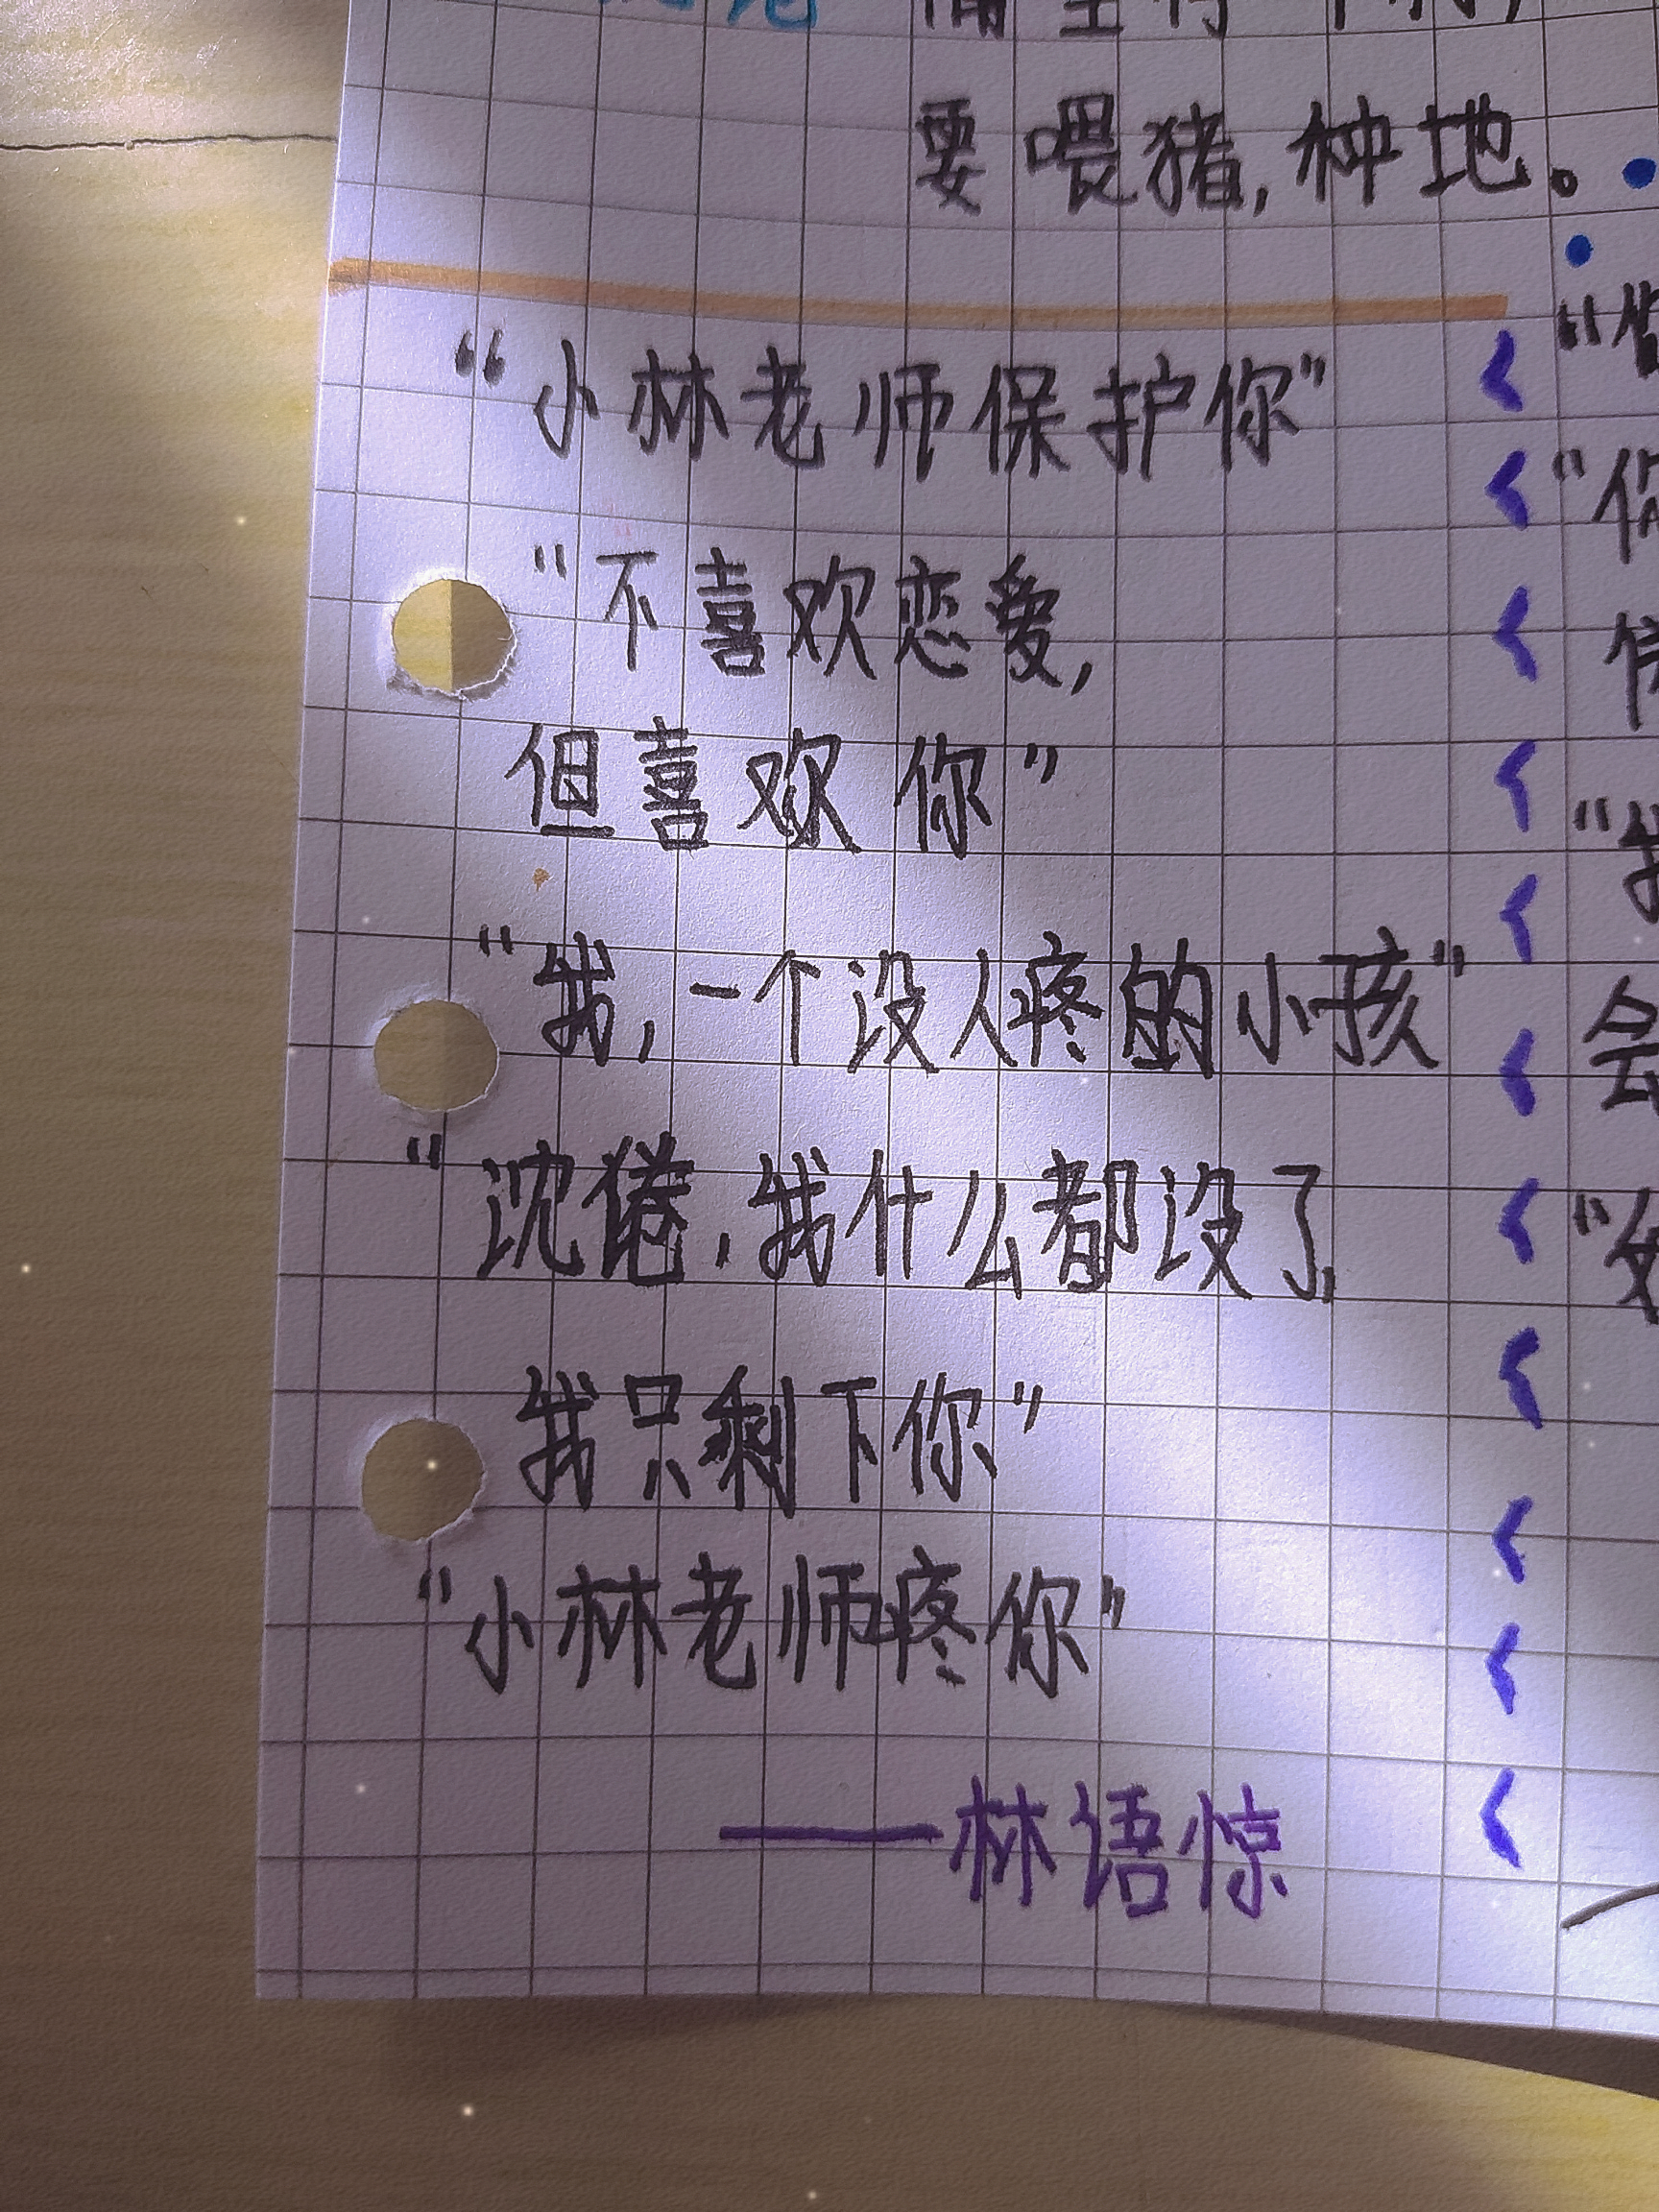 要喂猪,种地。
“小林老师保护你”
“不喜欢恋爱,
但喜欢你”
“我,一个没人疼的小孩”
“沈倦,我什么都没了,
我只剩下你”
“小林老师疼你”
——林语惊
“你
“我
会